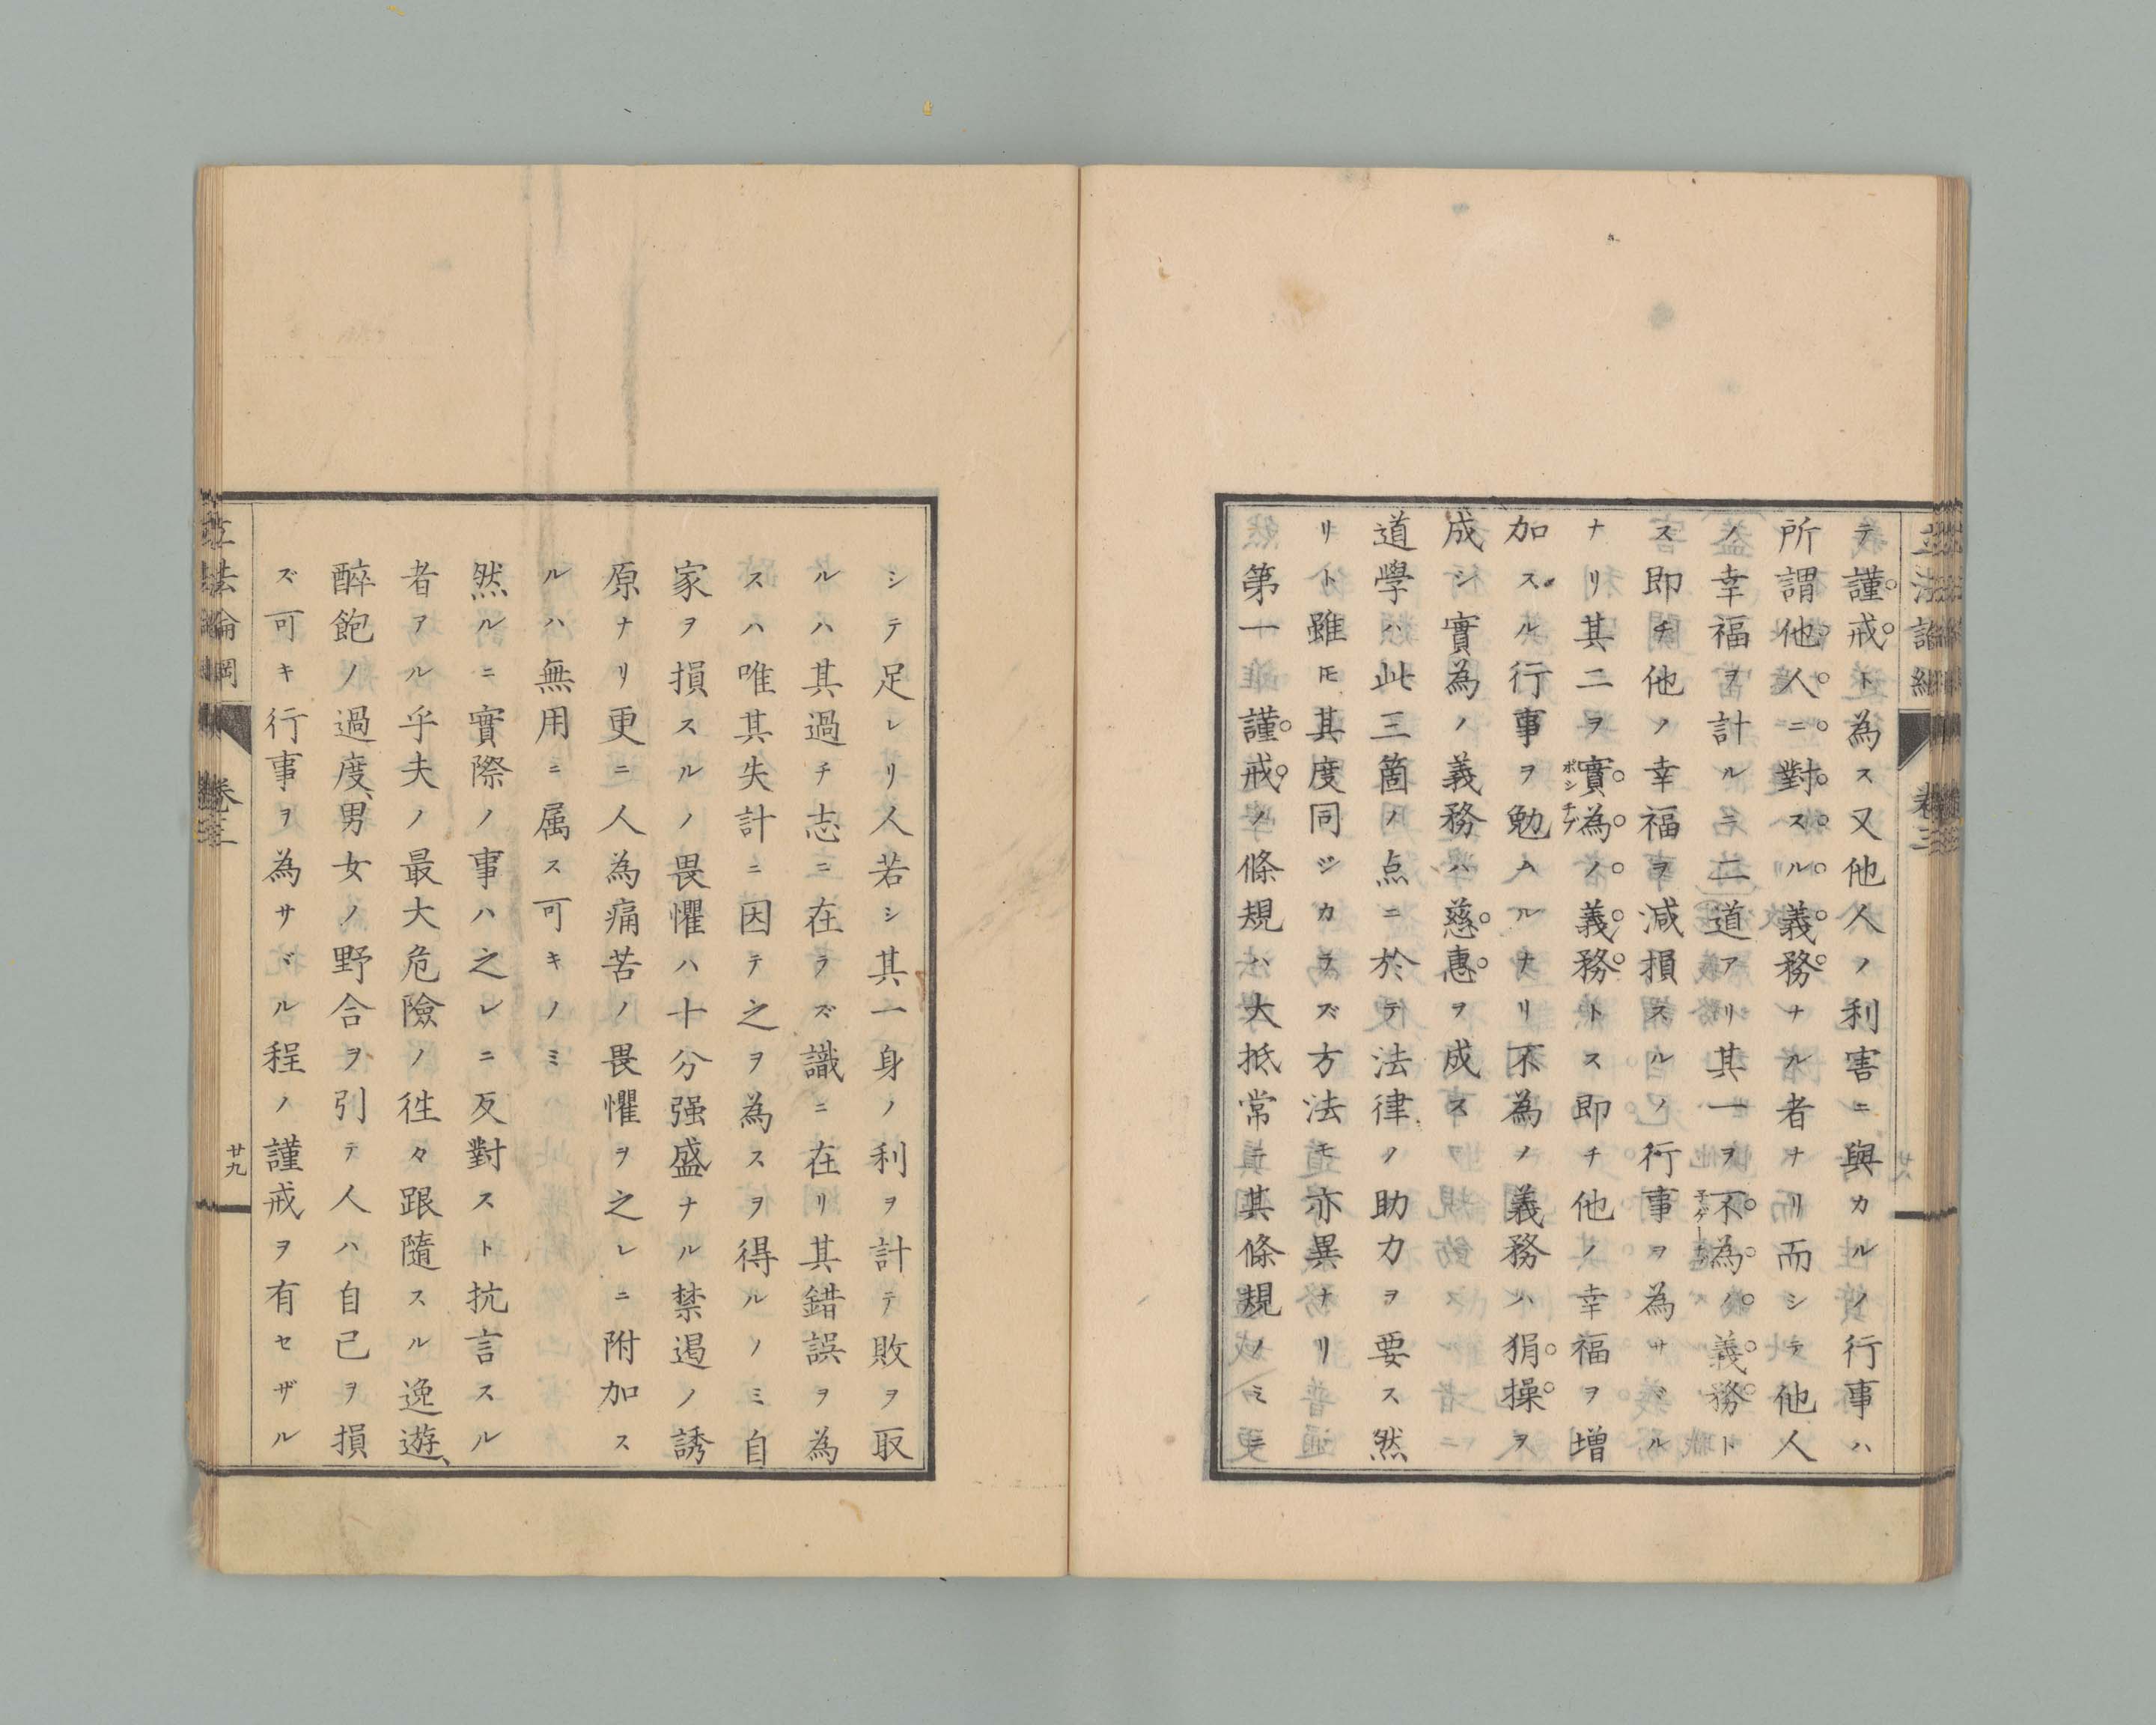 立法論綱 卷三
テ謹戒ト為ス又他人ノ利害ニ與カルノ行事ハ
所謂他人ニ對スル義務ナル者ナリ而シテ他人
ノ幸福ヲ計ルニ二道アリ其一ヲ不為ノ義務ト
ス即チ他ノ幸福ヲ減損スルノ行事ヲ為サヾル
ナリ其二ヲ實為ノ義務トス即チ他ノ幸福ヲ増
ポシチブ
加スルノ行事ヲ勉ムルナリ不為ノ義務ハ狷操ヲ
成シ實為ノ義務ハ慈惠ヲ成ス
道學ハ此三箇ノ点ニ於テ法律ノ助力ヲ要ス然
リト雖𪜈其度同ジカラズ方法モ亦異ナリ
第一謹戒ノ條規ハ大抵常ニ其條規ノミニ
シテ足レリ人若シ其一身ノ利ヲ計テ敗ヲ取
ルハ其過チ志ニ在ラズ識ニ在リ其錯誤ヲ為
スハ唯其失計ニ因テ之ヲ為スヲ得ルノミ自
家ヲ損スルノ畏懼ハ十分强盛ナル禁遏ノ誘
原ナリ更ニ人為痛苦ノ畏懼ヲ之レニ附加ス
ルハ無用ニ属ス可キノミ
然ルニ實際ノ事ハ之レニ反對スト抗言スル
者アル乎夫ノ最大危險ノ徃々跟隨スル逸遊、
醉飽ノ過度、男女ノ野合ヲ引テ人ハ自已ヲ損
ズ可キ行事ヲ為サヾル程ノ謹戒ヲ有セザル
立法論綱 卷三 廿九